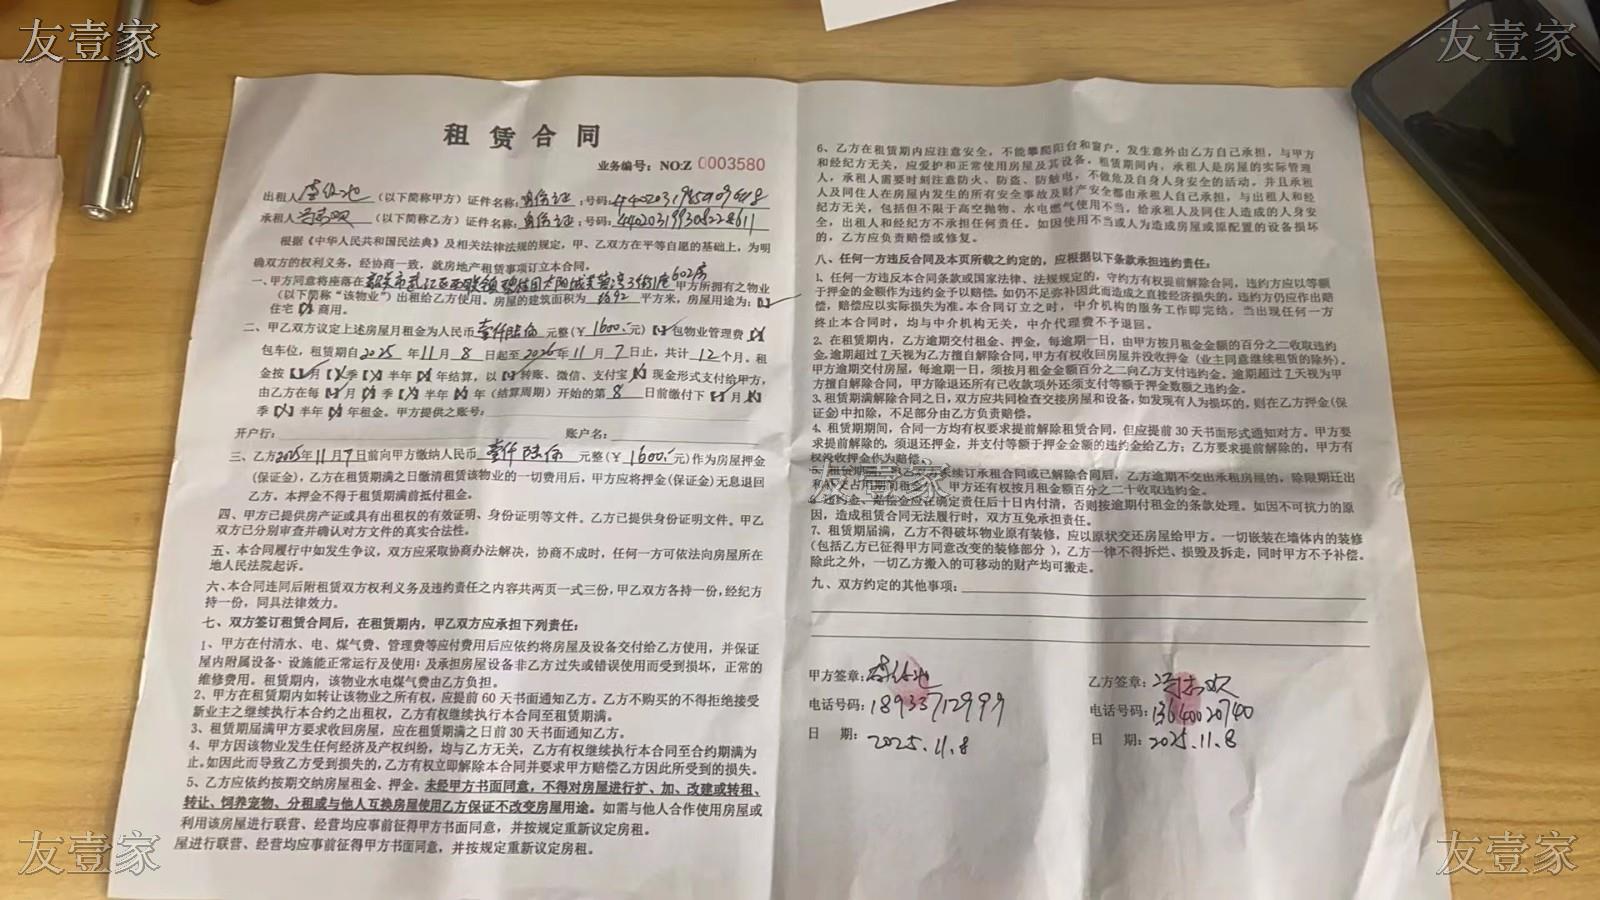 友壹家
友壹家
租赁合同
业务编号：NO:Z 0003580
出租人（以下简称甲方）证件名称：身份证；号码：
承租人（以下简称乙方）证件名称：身份证；号码：440203199308228611
根据《中华人民共和国民法典》及相关法律法规的规定，甲、乙双方在平等自愿的基础上，为明
确双方的权利义务，经协商一致，就房地产租赁事项订立本合同。
一、甲方同意将座落在韶关市武江区西联镇碧桂园太阳城芙蓉湾 602房 甲方所拥有之物业
（以下简称“该物业”）出租给乙方使用。房屋的建筑面积为 平方米，房屋用途为：【】
住宅【】商用。
二、甲乙双方议定上述房屋月租金为人民币壹仟陆佰元整（¥1600.元）【】包物业管理费【】
包车位，租赁期自2025年11月8日起至2026年11月7日止，共计12个月。租
金按【】月【】季【】半年【】年结算，以【】转账、微信、支付宝【】现金形式支付给甲方，
由乙方在每【】月【】季【】半年【】年（结算周期）开始的第8日前缴付下【】月【】
季【】半年【】年租金。甲方提供之账号：
开户行： 账户名：
三、乙方2025年11月7日前向甲方缴纳人民币壹仟陆佰元整（¥1600.元）作为房屋押金
（保证金），乙方在租赁期满之日缴清租赁该物业的一切费用后，甲方应将押金（保证金）无息退回
乙方。本押金不得于租赁期满前抵付租金。
四、甲方已提供房产证或具有出租权的有效证明、身份证明等文件。乙方已提供身份证明文件。甲乙
双方已分别审查并确认对方文件的真实合法性。
五、本合同履行中如发生争议，双方应采取协商办法解决，协商不成时，任何一方可依法向房屋所在
地人民法院起诉。
六、本合同连同后附租赁双方权利义务及违约责任之内容共两页一式三份，甲乙双方各持一份，经纪方
持一份，同具法律效力。
七、双方签订租赁合同后，在租赁期内，甲乙双方应承担下列责任：
1、甲方在付清水、电、煤气费、管理费等应付费用后应依约将房屋及设备交付给乙方使用，并保证
屋内附属设备、设施能正常运行及使用；及承担房屋设备非乙方过失或错误使用而受到损坏，正常的
维修费用。租赁期内，该物业水电煤气费由乙方负担。
2、甲方在租赁期内如转让该物业之所有权，应提前60天书面通知乙方。乙方不购买的不得拒绝接受
新业主之继续执行本合约之出租权，乙方有权继续执行本合同至租赁期满。
3、租赁期届满甲方要求收回房屋，应在租赁期满之日前30天书面通知乙方。
4、甲方因该物业发生任何经济及产权纠纷，均与乙方无关，乙方有权继续执行本合同至合约期满为
止。如因此而导致乙方受到损失的，乙方有权立即解除本合同并要求甲方赔偿乙方因此所受到的损失。
5、乙方应依约按期交纳房屋租金、押金。未经甲方书面同意，不得对房屋进行扩、加、改建或转租、
转让、饲养宠物、分租或与他人互换房屋使用乙方保证不改变房屋用途。如需与他人合作使用房屋或
利用该房屋进行联营、经营均应事前征得甲方书面同意，并按规定重新议定房租。
屋进行联营、经营均应事前征得甲方书面同意，并按规定重新议定房租。
6、乙方在租赁期内应注意安全，不能攀爬阳台和窗户，发生意外由乙方自己承担，与甲方
和经纪方无关，应爱护和正常使用房屋及其设备，租赁期间内，承租人是房屋的实际管理
人，承租人需要时刻注意防火、防盗、防触电，不做危及自身人身安全的活动，并且承租
人及同住人在房屋内发生的所有安全事故及财产安全都由承租人自己承担，与出租人和经
纪方无关，包括但不限于高空抛物、水电燃气使用不当，给承租人及同住人造成的人身安
全，出租人和经纪方不承担任何责任。如因使用不当或人为造成房屋或原配置的设备损坏
的，乙方应负责赔偿或修复。
八、任何一方违反合同及本页所载之约定的，应根据以下条款承担违约责任：
1、任何一方违反本合同条款或国家法律、法规规定的，守约方有权提前解除合同，违约方应以等额
于押金的金额作为违约金予以赔偿。如仍不足弥补因此而造成之直接经济损失的，违约方仍应作出赔
偿，赔偿应以实际损失为准。本合同订立之时，中介机构的服务工作即完结，当出现任何一方
终止本合同时，均与中介机构无关，中介代理费不予退回。
2、在租赁期内，乙方逾期交付租金、押金，每逾期一日，由甲方按月租金金额的百分之二收取违约
金，逾期超过7天视为乙方擅自解除合同，甲方有权收回房屋并没收押金（业主同意继续租赁的除外）。
甲方逾期交付房屋，每逾期一日，须按月租金金额百分之二向乙方支付违约金。逾期超过7天视为甲
方擅自解除合同，甲方除退还所有已收款项外还须支付等额于押金数额之违约金。
3、租赁期满解除合同之日，双方应共同检查交接房屋和设备，如发现有人为损坏的，则在乙方押金（保
证金）中扣除，不足部分由乙方负责赔偿。
4、租赁期期间，合同一方均有权要求提前解除租赁合同，但应提前30天书面形式通知对方。甲方要
求提前解除的，须退还押金，并支付等额于押金金额的违约金给乙方；乙方要求提前解除的，甲方有
权没收押金作为赔偿。
5、租赁期满，续订承租合同或已解除合同后，乙方逾期不交出承租房屋的，除限期迁出
和补交占用期间租金外，甲方还有权按月租金额百分之二十收取违约金。
友壹家
6、违约金、赔偿金应在确定责任后十日内付清，否则按逾期付租金的条款处理。如因不可抗力的原
因，造成租赁合同无法履行时，双方互免承担责任。
7、租赁期届满，乙方不得破坏物业原有装修，应以原状交还房屋给甲方。一切嵌装在墙体内的装修
（包括乙方已征得甲方同意改变的装修部分），乙方一律不得拆烂、损毁及拆走，同时甲方不予补偿。
除此之外，一切乙方搬入的可移动的财产均可搬走。
九、双方约定的其他事项：
甲方签章：
电话号码：
日 期：2025.11.8
乙方签章：
电话号码：13640020740
日 期：2025.11.8
友壹家
友壹家